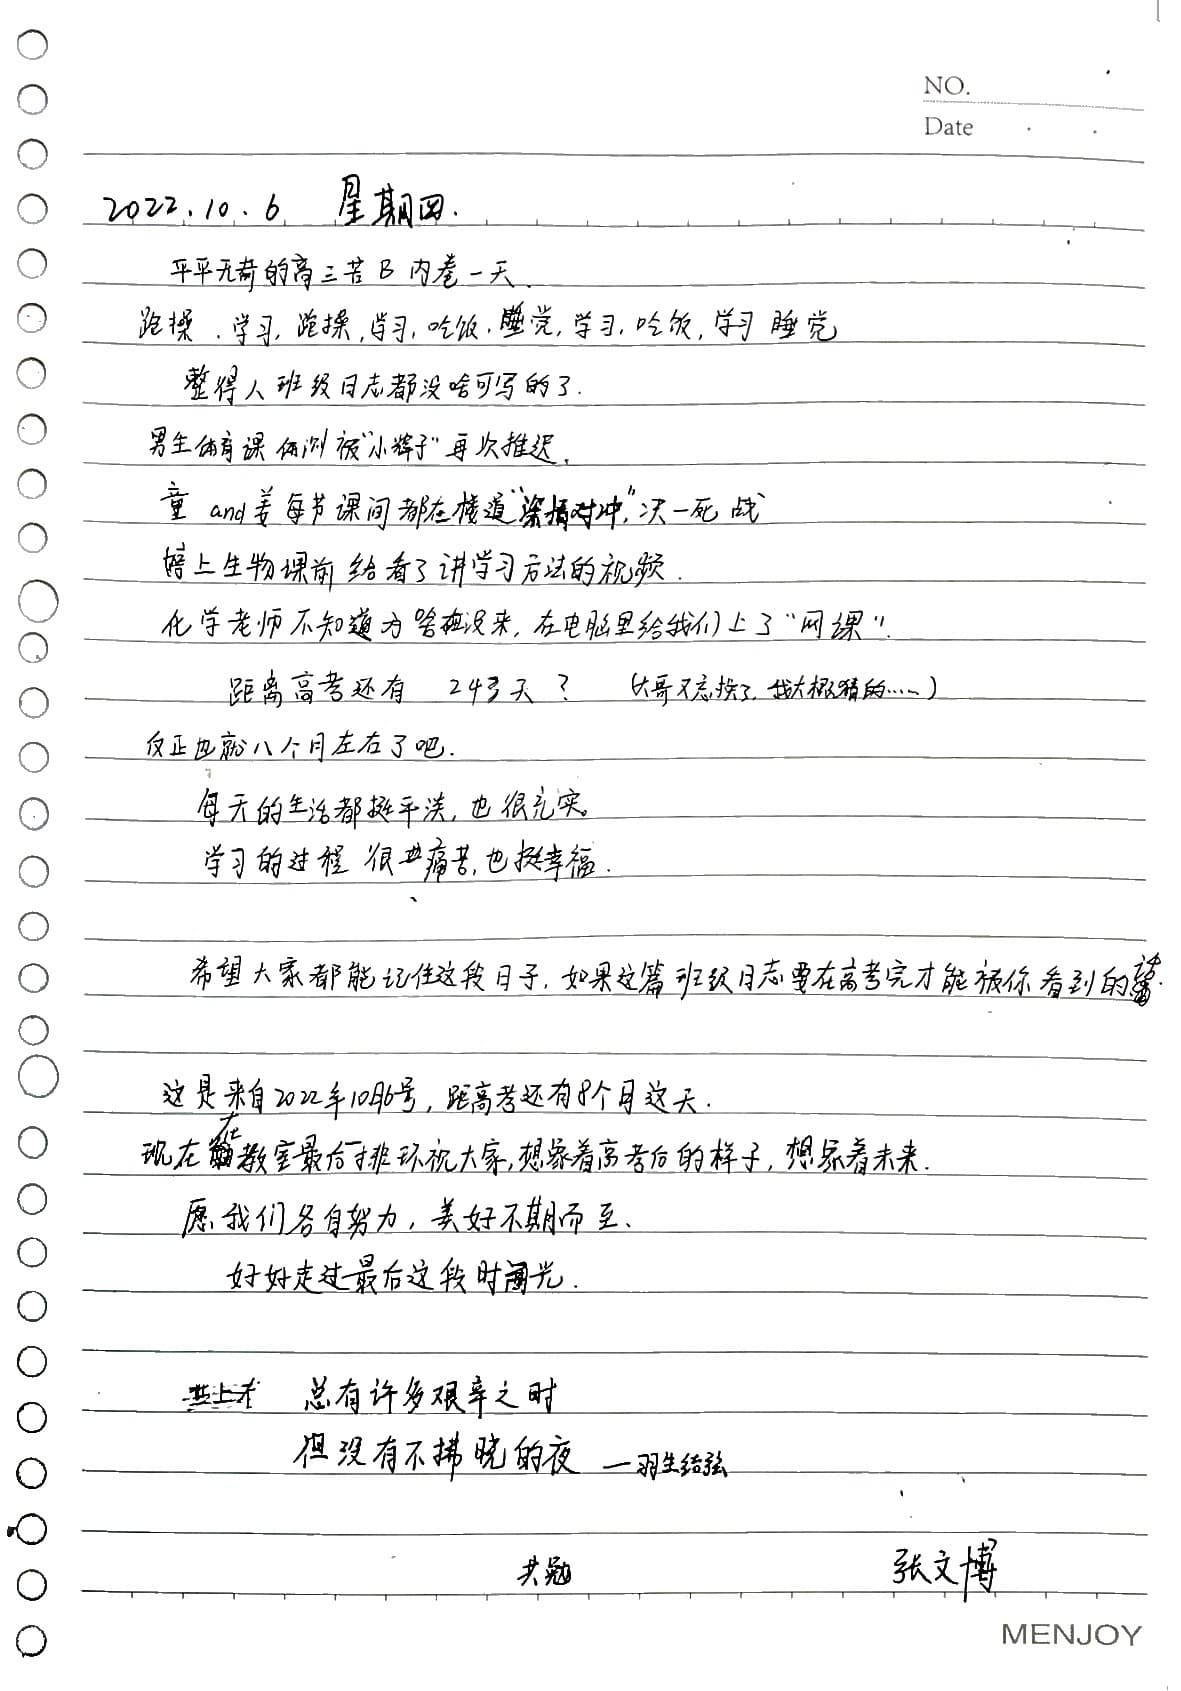 NO.
Date
2022.10.6 星期四.
平平无奇的高三苦B内卷一天.
跑操.学习,跑操,学习,吃饭,睡觉,学习,吃饭,学习 睡觉
整得人班级日志都没啥可写的了.
男生体育课体测被"小辉子"再次推迟.
童and姜每节课间都在栈道"深情对冲",决一死战
晚上生物课前给看了讲学习方法的视频.
化学老师不知道为啥没来,在电脑里给我们上了"网课".
距离高考还有 243天? (大哥又忘换了,我大概猜的……)
反正也就八个月左右了吧.
每天的生活都挺平淡,也很充实。
学习的过程很痛苦,也挺幸福.
希望大家都能记住这段日子,如果这篇班级日志要在高考完才能被你看到的话.
这是来自2022年10月6号,距高考还有8个月这天.
现在在教室最后一排环视大家,想象着高考后的样子,想象着未来.
愿我们各自努力,美好不期而至.
好好走过最后这段时光.
总有许多艰辛之时
但没有不拂晓的夜 —羽生结弦
共勉 张文博
MENJOY